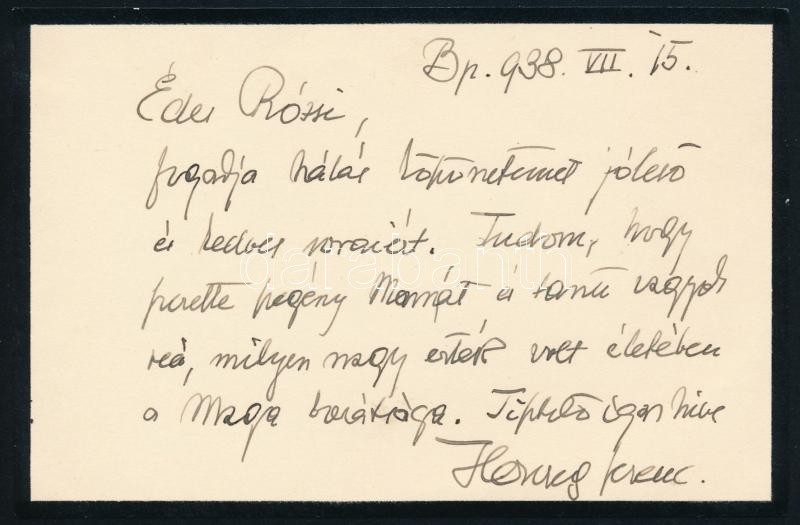 Bp. 938. VII. 15.
Édes Rózsi,
fogadja hálás köszönetemet jóleső
és kedves soraiért. Tudom, hogy
szerette szegény Mamát és tanu vagyok
reá, milyen nagy érték volt életében
a Maga barátsága. Tisztelő igaz hive
Herczeg Ferenc.
darabanth